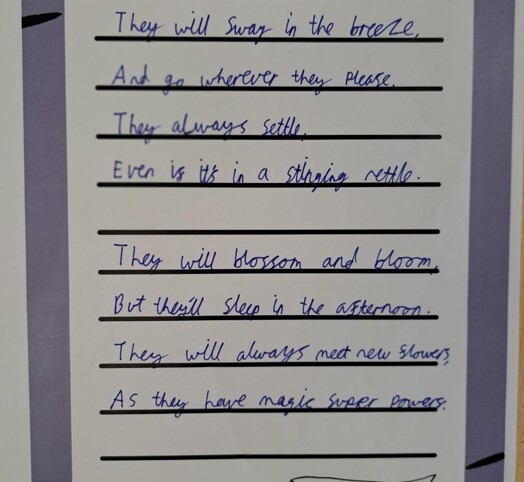 They will sway in the breeze,
And go wherever they please.
They always settle,
Even if it's in a stinging nettle.
They will blossom and bloom,
But they'll sleep in the afternoon.
They will always meet new flowers,
As they have magic super powers.